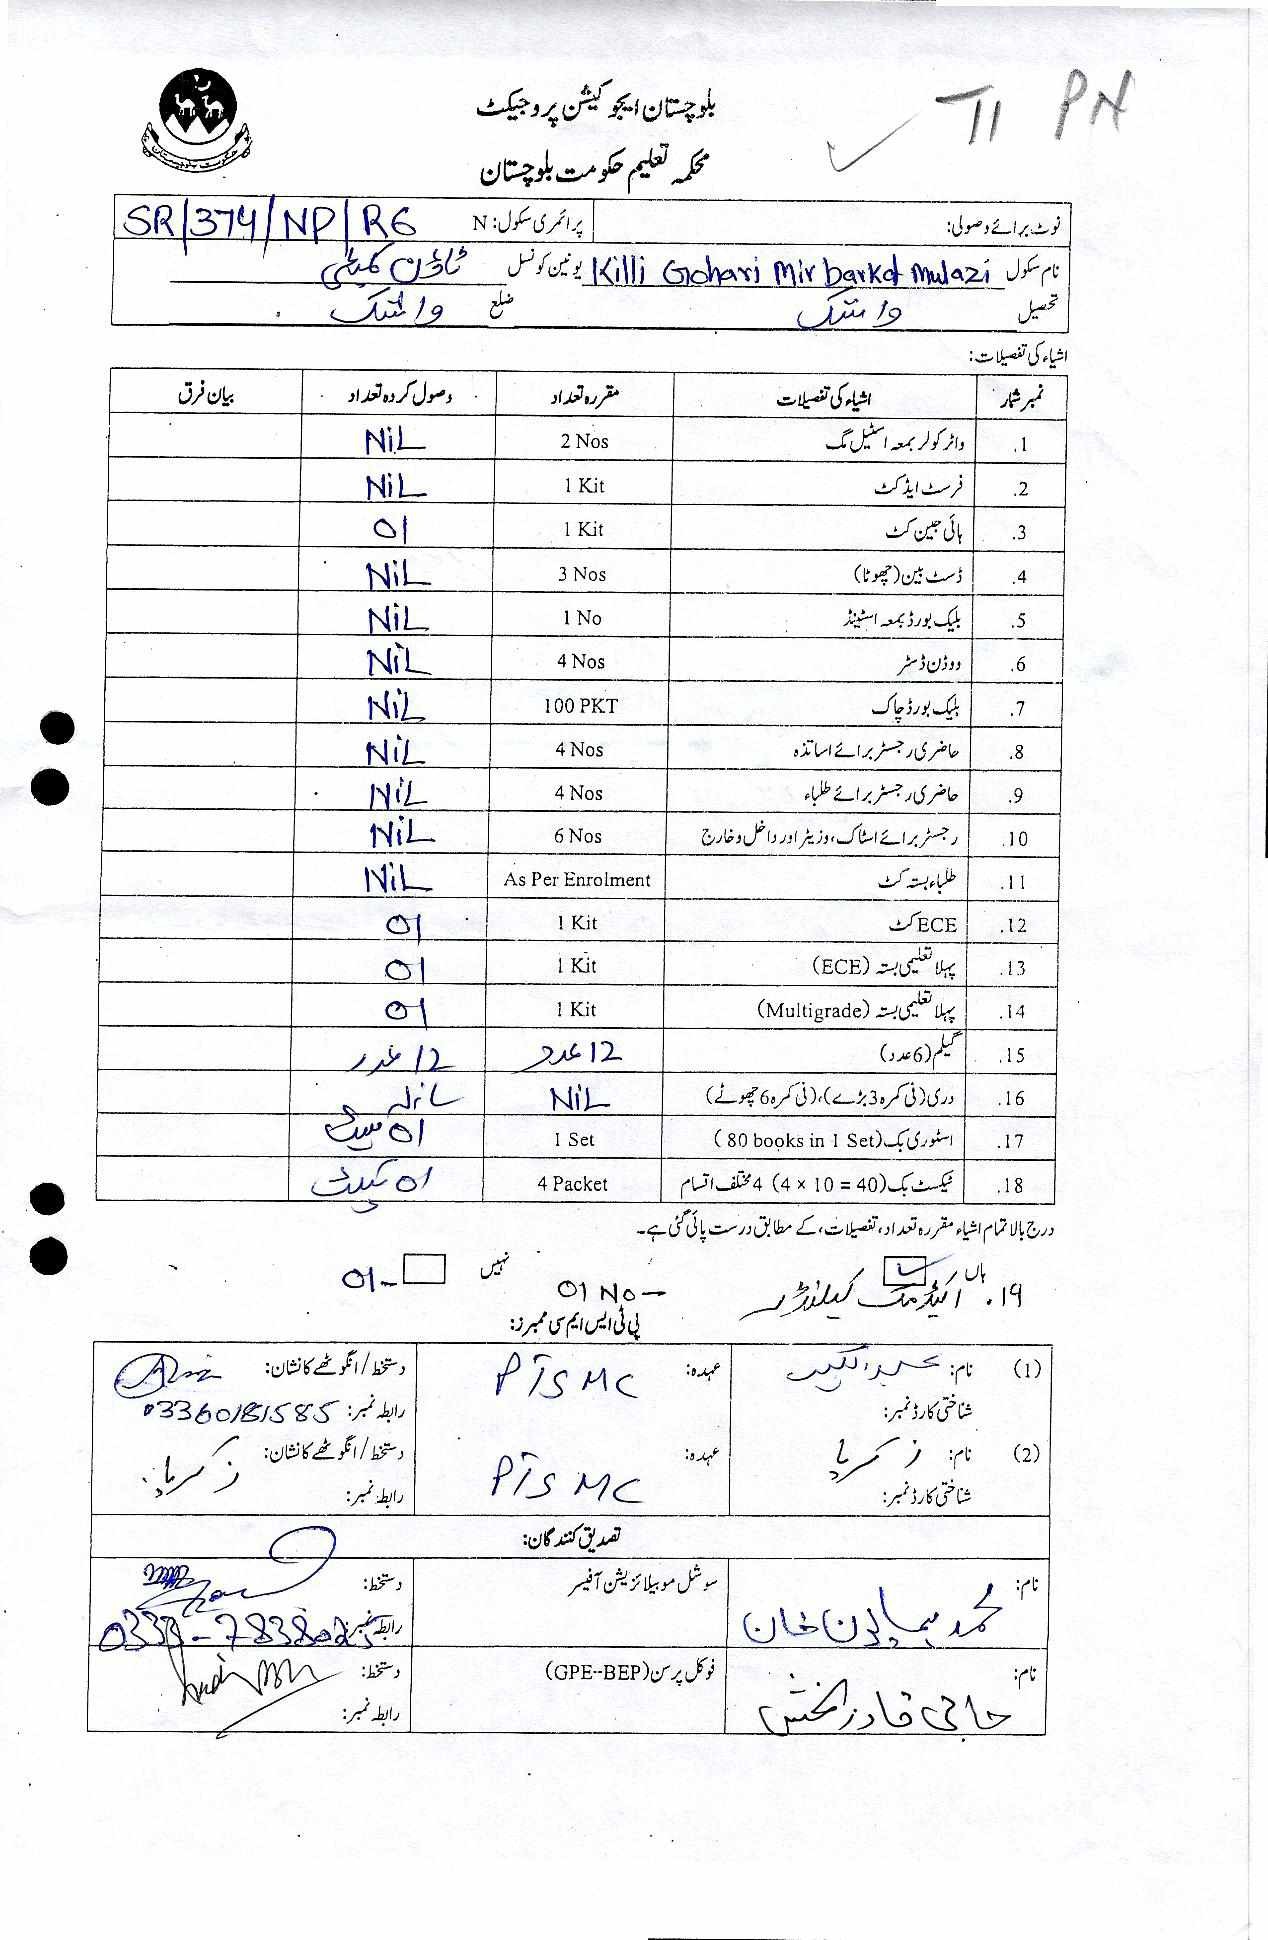 T1 PN
بلوچستان ایجوکیشن پروجیکٹ
محکمہ تعلیم حکومت بلوچستان
حکومت بلوچستان
نوٹ برائے وصولی: پرائمری سکول: N SR/374/NP/R6
نام سکول Killi Gohari Mir barkat mulazi یونین کونسل ٹاؤن کمیٹی
تحصیل واشک ضلع واشک
اشیاء کی تفصیلات:
نمبر شمار اشیاء کی تفصیلات مقررہ تعداد وصول کردہ تعداد بیان فرق
1. واٹر کولر بمعہ اسٹیل مگ 2 Nos NiL
2. فرسٹ ایڈ کٹ 1 Kit NiL
3. ہائی جین کٹ 1 Kit 01
4. ڈسٹ بین (چھوٹا) 3 Nos NiL
5. بلیک بورڈ بمعہ اسٹینڈ 1 No NiL
6. ووڈن ڈسٹر 4 Nos NiL
7. بلیک بورڈ چاک 100 PKT NiL
8. حاضری رجسٹر برائے اساتذہ 4 Nos NiL
9. حاضری رجسٹر برائے طلباء 4 Nos NiL
10. رجسٹر برائے اسٹاک، وزیٹر اور داخل و خارج 6 Nos NiL
11. طلباء بستہ کٹ As Per Enrolment NiL
12. ECE کٹ 1 Kit 01
13. پہلا تعلیمی بستہ (ECE) 1 Kit 01
14. پہلا تعلیمی بستہ (Multigrade) 1 Kit 01
15. گیلم (6 عدد) 12 عدد 12 عدد
16. دری (فی کمرہ 3 بڑے)، (فی کمرہ 6 چھوٹے) NiL NiL
17. اسٹوری بک (80 books in 1 Set) 1 Set 01 سیٹ
18. ٹیکسٹ بک (4 × 10 = 40) 4 مختلف اقسام 4 Packet 01
درج بالا تمام اشیاء مقررہ تعداد، تفصیلات، کے مطابق درست پائی گئی ہے۔
ہاں ✓ نہیں
19. اکیڈمک کیلنڈر 01 No – 01
پی ٹی ایس ایم سی ممبرز:
(1) نام: عہدہ: PTSMC دستخط / انگوٹھے کا نشان:
شناختی کارڈ نمبر: رابطہ نمبر: 03360181585
(2) نام: زکریا عہدہ: PTSMC دستخط / انگوٹھے کا نشان: زکریا
شناختی کارڈ نمبر: رابطہ نمبر:
تصدیق کنندگان:
نام: محمد ہمایون خان سوشل موبیلائزیشن آفیسر دستخط:
رابطہ نمبر: 0333-7838025
نام: حاجی قادر بخش فوکل پرسن (GPE--BEP) دستخط:
رابطہ نمبر: